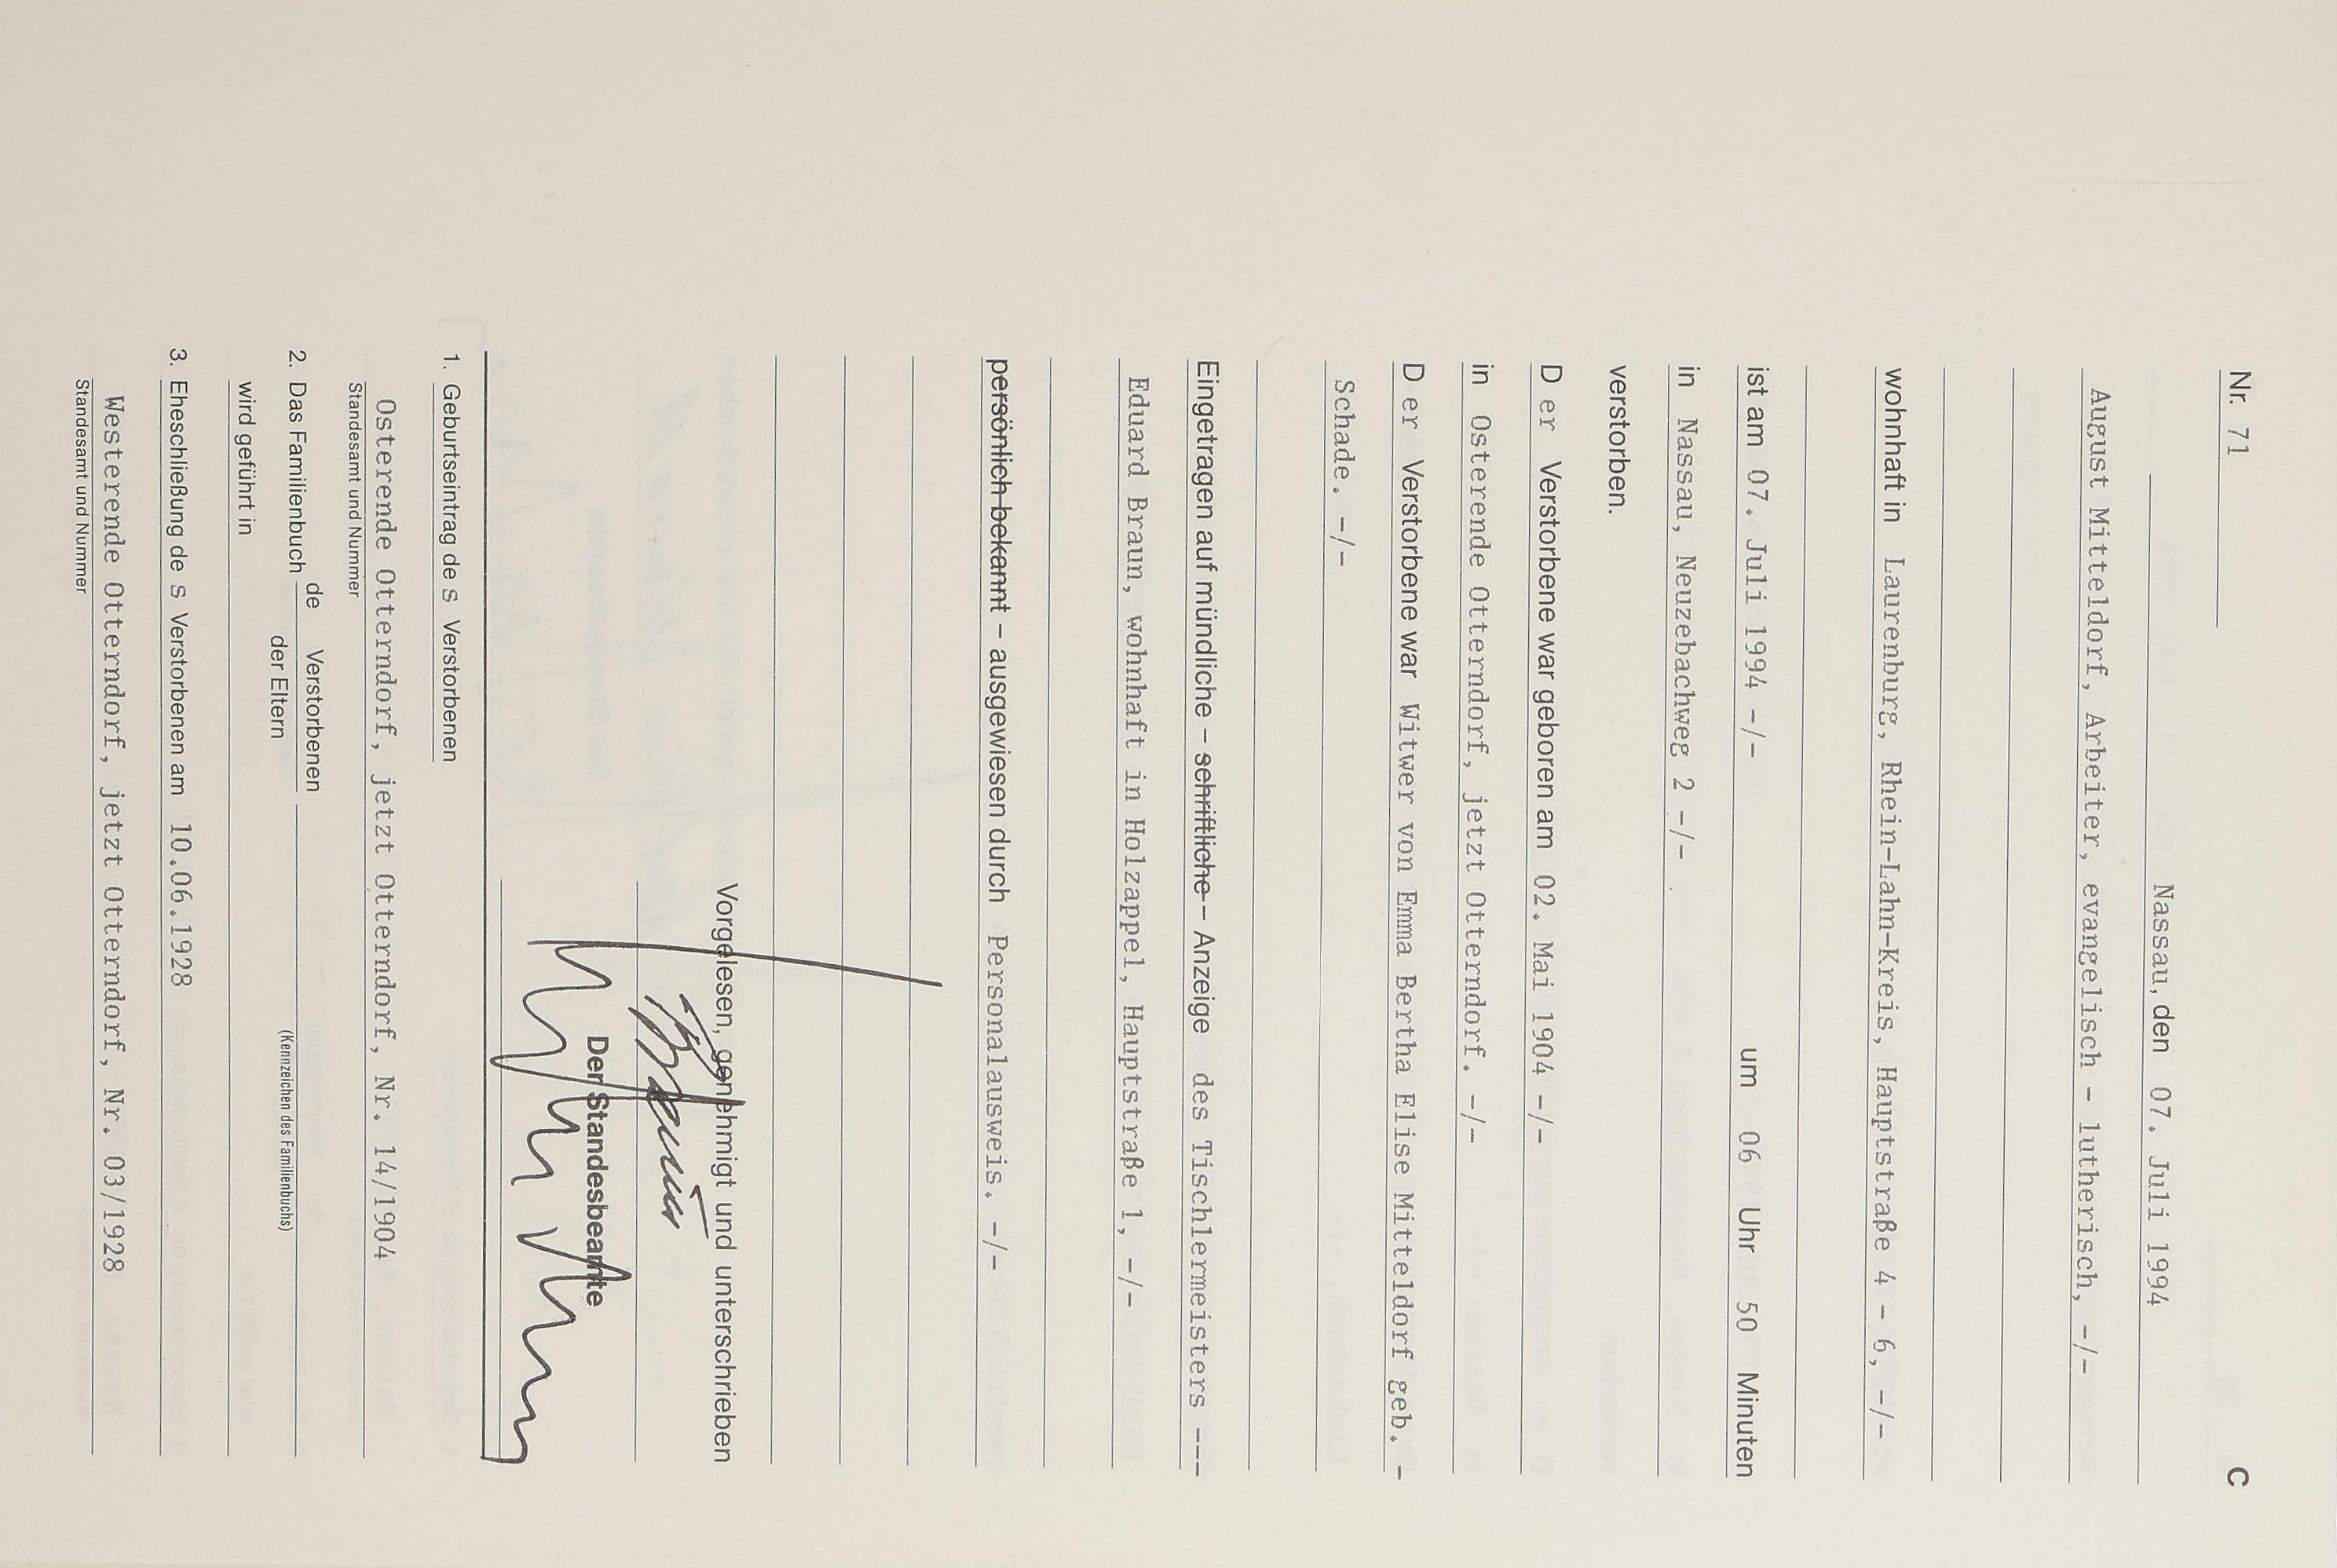 Nr. 71 C
Nassau, den 07. Juli 1994
August Mitteldorf, Arbeiter, evangelisch - lutherisch, -/-
wohnhaft in Laurenburg, Rhein-Lahn-Kreis, Hauptstraße 4 - 6, -/-
ist am 07. Juli 1994 -/- um 06 Uhr 50 Minuten
in Nassau, Neuzebachweg 2 -/-
verstorben.
D er Verstorbene war geboren am 02. Mai 1904 -/-
in Osterende Otterndorf, jetzt Otterndorf. -/-
D er Verstorbene war Witwer von Emma Bertha Elise Mitteldorf geb. -
Schade. -/-
Eingetragen auf mündliche – schriftliche – Anzeige des Tischlermeisters ---
Eduard Braun, wohnhaft in Holzappel, Hauptstraße 1, -/-
persönlich bekannt – ausgewiesen durch Personalausweis. -/-
Vorgelesen, genehmigt und unterschrieben
Braun
Der Standesbeamte
1. Geburtseintrag de s Verstorbenen
Osterende Otterndorf, jetzt Otterndorf, Nr. 14/1904
Standesamt und Nummer
de Verstorbenen
2. Das Familienbuch
der Eltern
(Kennzeichen des Familienbuchs)
wird geführt in
3. Eheschließung de s Verstorbenen am 10.06.1928
Westerende Otterndorf, jetzt Otterndorf, Nr. 03/1928
Standesamt und Nummer